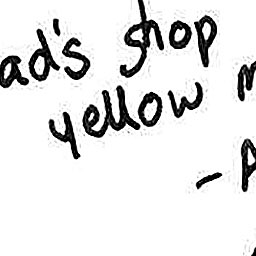 ad's shop
yellow
-